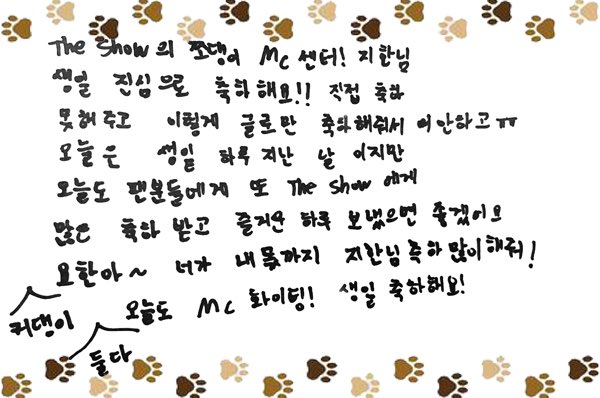 The Show의 쪼댕이 MC 센터! 지한님
생일 진심으로 축하해요!! 직접 축하
못해주고 이렇게 글로만 축하해줘서 미안하고ㅠㅠ
오늘은 생일 하루 지난 날 이지만
오늘도 팬분들에게 또 The Show 에게
많은 축하 받고 즐거운 하루 보냈으면 좋겠어요
요한아~ 너가 내 몫까지 지한님 축하 많이 해줘!
커댕이 오늘도 MC 화이팅! 생일 축하해요!
둘다